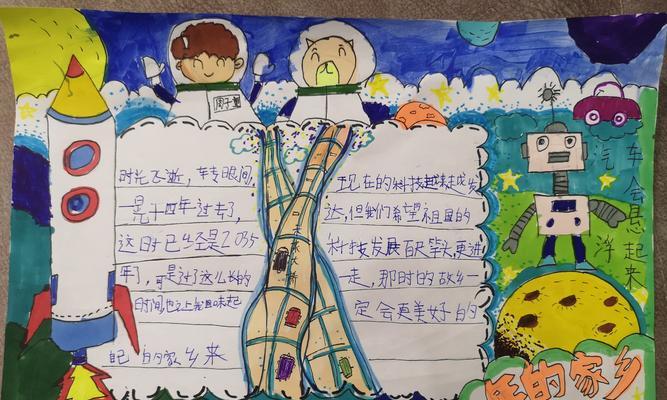 时光飞逝,转眼间,
是十四年过去了,
这时已经是2035
年了,可是过了这么长的
时间也让我回味起
自己的家乡来
现在的科技越来越发
达,但我们希望祖国的
科技发展百尺竿头,更进
一走,那时的故乡一
定会更美好的
汽车会悬浮起来
的家乡